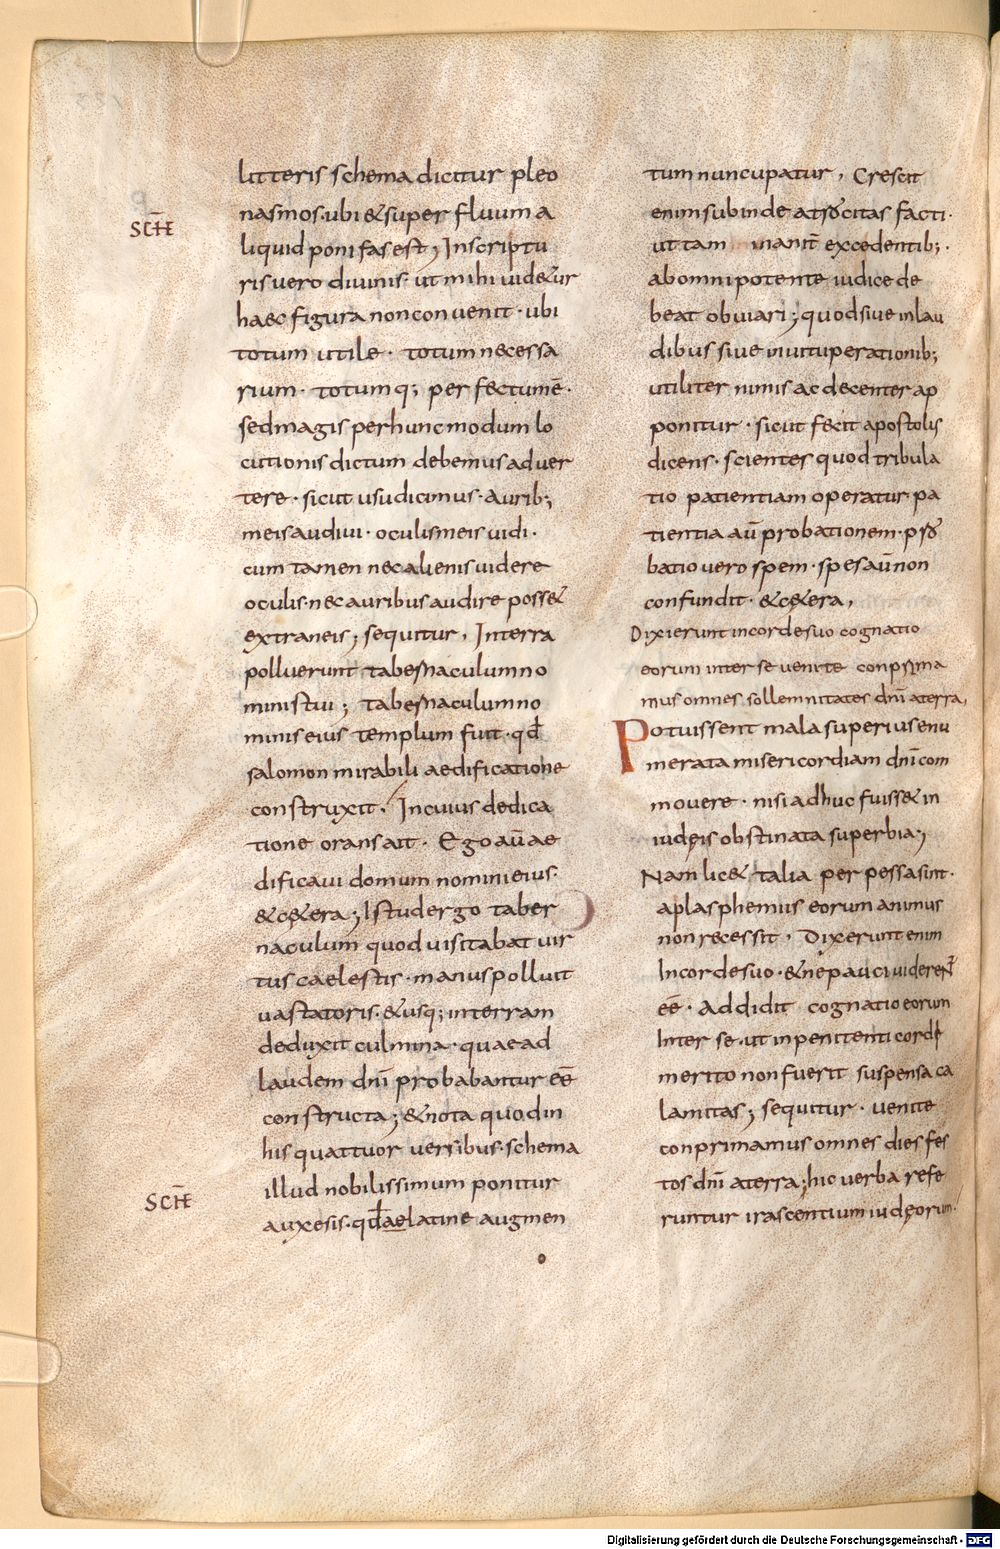 litteris schema dicitur pleo
nasmos·ubi &super fluum a
SCHE
liquid poni fas est; Inscriptu
ris vero divinis· ut mihi uid&ur
haec figura non convenit· ubi
totum utile· totum necessa
rium· totumq; perfectum ē·
sed magis per hunc modum lo
cutionis dictum debemus adver
tere· sicut usu dicimus· aurib;
meis audivi· oculis meis vidi·
cum tamen nec alienis videre
oculis· nec auribus audire poss&
extraneis; sequitur, Interra
polluerunt tabernaculum no
minis tui; tabernaculum no
minis eius templum fuit· qđ
salomon mirabili aedificatione
construxit. Incuius dedica
tione orans ait· Ego aū ae
dificavi domum nomini eius·
&c&era; Istud ergo taber
naculum quod visitabat vir
tus caelestis· manus polluit
vastatoris· &usq; in terram
deduxit culmina· quae ad
laudem dnī probabantur ēē
constructa; &nota quod in
his quattuor versibus· schema
SCHE
illud nobilissimum ponitur
auxesis· qđ ae latine augmen
tum nuncupatur, Crescit
enim subinde atrocitas facti·
ut tam inanit̄ excedentib;·
ab omnipotente iudice de
beat obviari; quod sive inlau
dibus sive in vituperationib;
utiliter nimis ac decenter ap
ponitur· sicut fecit apostolis
dicens· scientes quod tribula
tio patientiam operatur· pa
tientia aū probationem· pro
batio vero spem· spes aū non
confundit· &c&era,
Dixierunt incorde suo cognatio
eorum inter se venite conprima
mus omnes sollemnitates dnī aterra,
Potuissent mala superius enu
merata misericordiam dnī com
movere· nisi adhuc fuiss& in
iudęis obstinata superbia;
Nam lic& talia perpessa sint·
a plasphemiis eorum animus
non recessit, Dixerunt enim
Incorde suo· &nepauci viderent̄
ēē· Addidit cognatio eorum
Inter se· ut inpenitenti corde
merito non fuerit suspensa ca
lamitas; sequitur· venite
conprimamus omnes dies fes
tos dnī aterra; hic verba refe
runtur irascentium iudęorum·
Digitalisierung gefördert durch die Deutsche Forschungsgemeinschaft - DFG